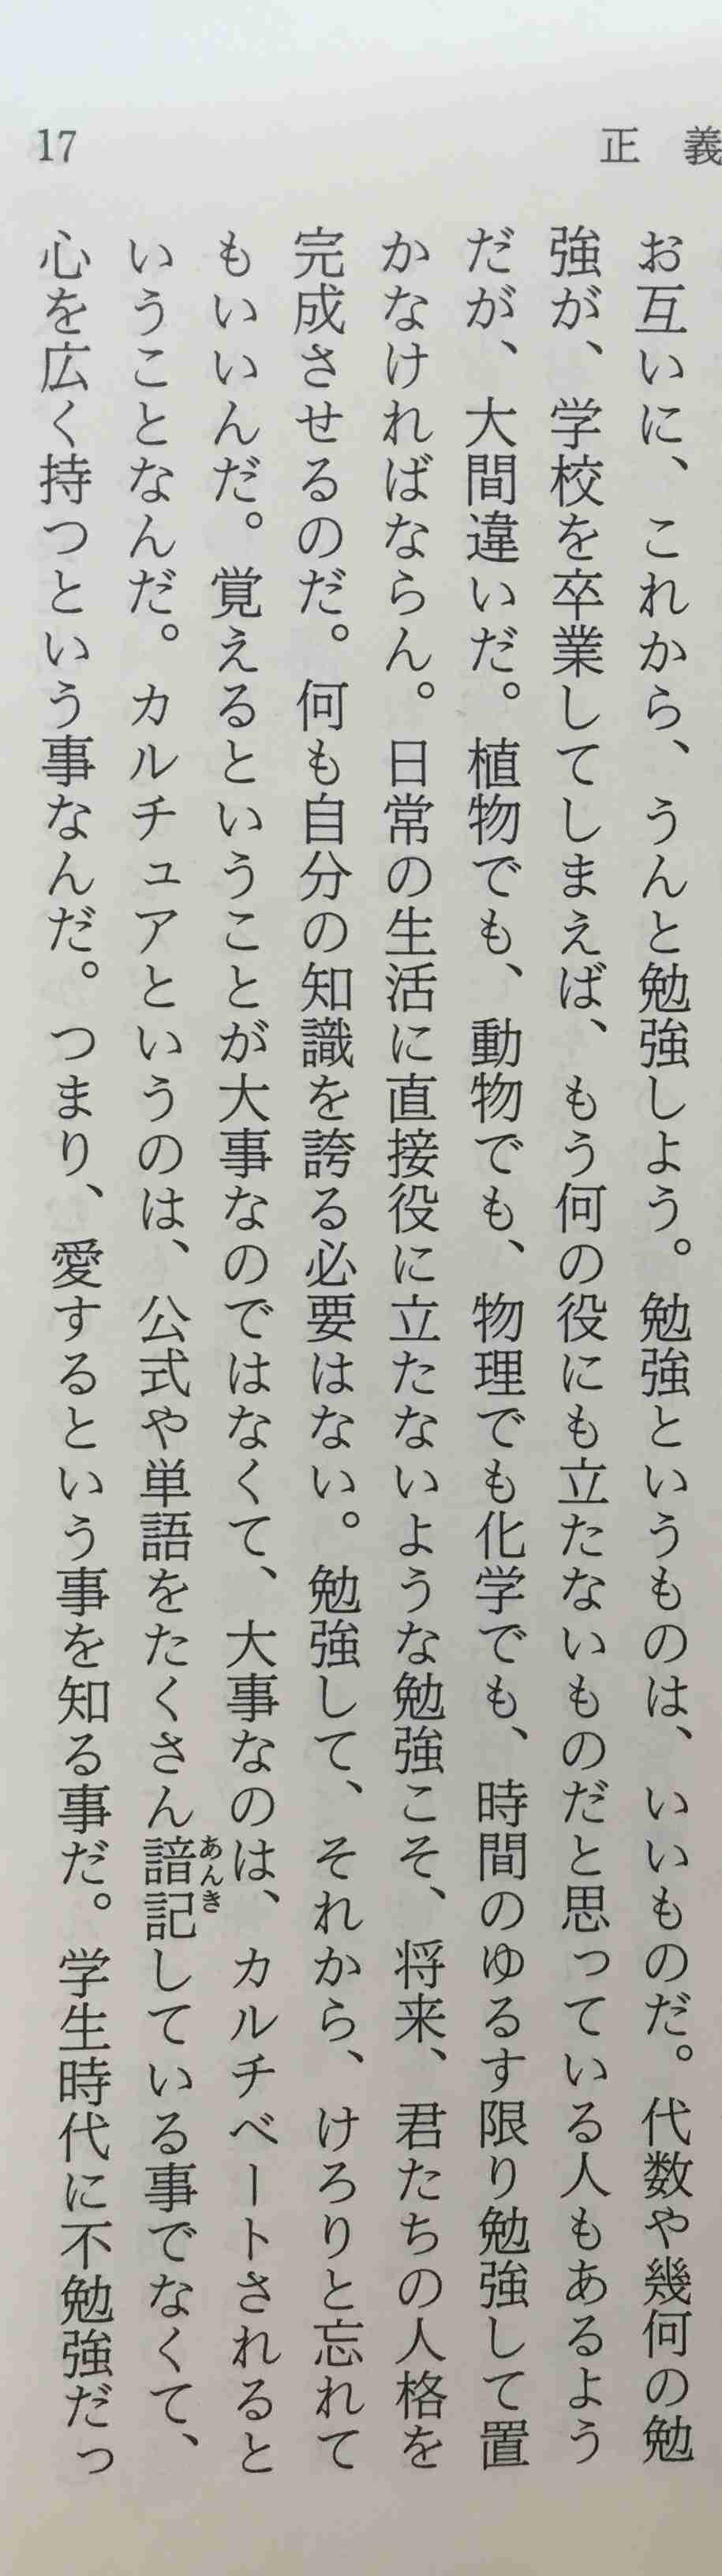 17
正義
お互いに、これから、うんと勉強しよう。勉強というものは、いいものだ。代数や幾何の勉
強が、学校を卒業してしまえば、もう何の役にも立たないものだと思っている人もあるよう
だが、大間違いだ。植物でも、動物でも、物理でも化学でも、時間のゆるす限り勉強して置
かなければならん。日常の生活に直接役に立たないような勉強こそ、将来、君たちの人格を
完成させるのだ。何も自分の知識を誇る必要はない。勉強して、それから、けろりと忘れて
もいいんだ。覚えるということが大事なのではなくて、大事なのは、カルチベートされると
いうことなんだ。カルチュアというのは、公式や単語をたくさん諳記している事でなくて、
あんき
心を広く持つという事なんだ。つまり、愛するという事を知る事だ。学生時代に不勉強だっ